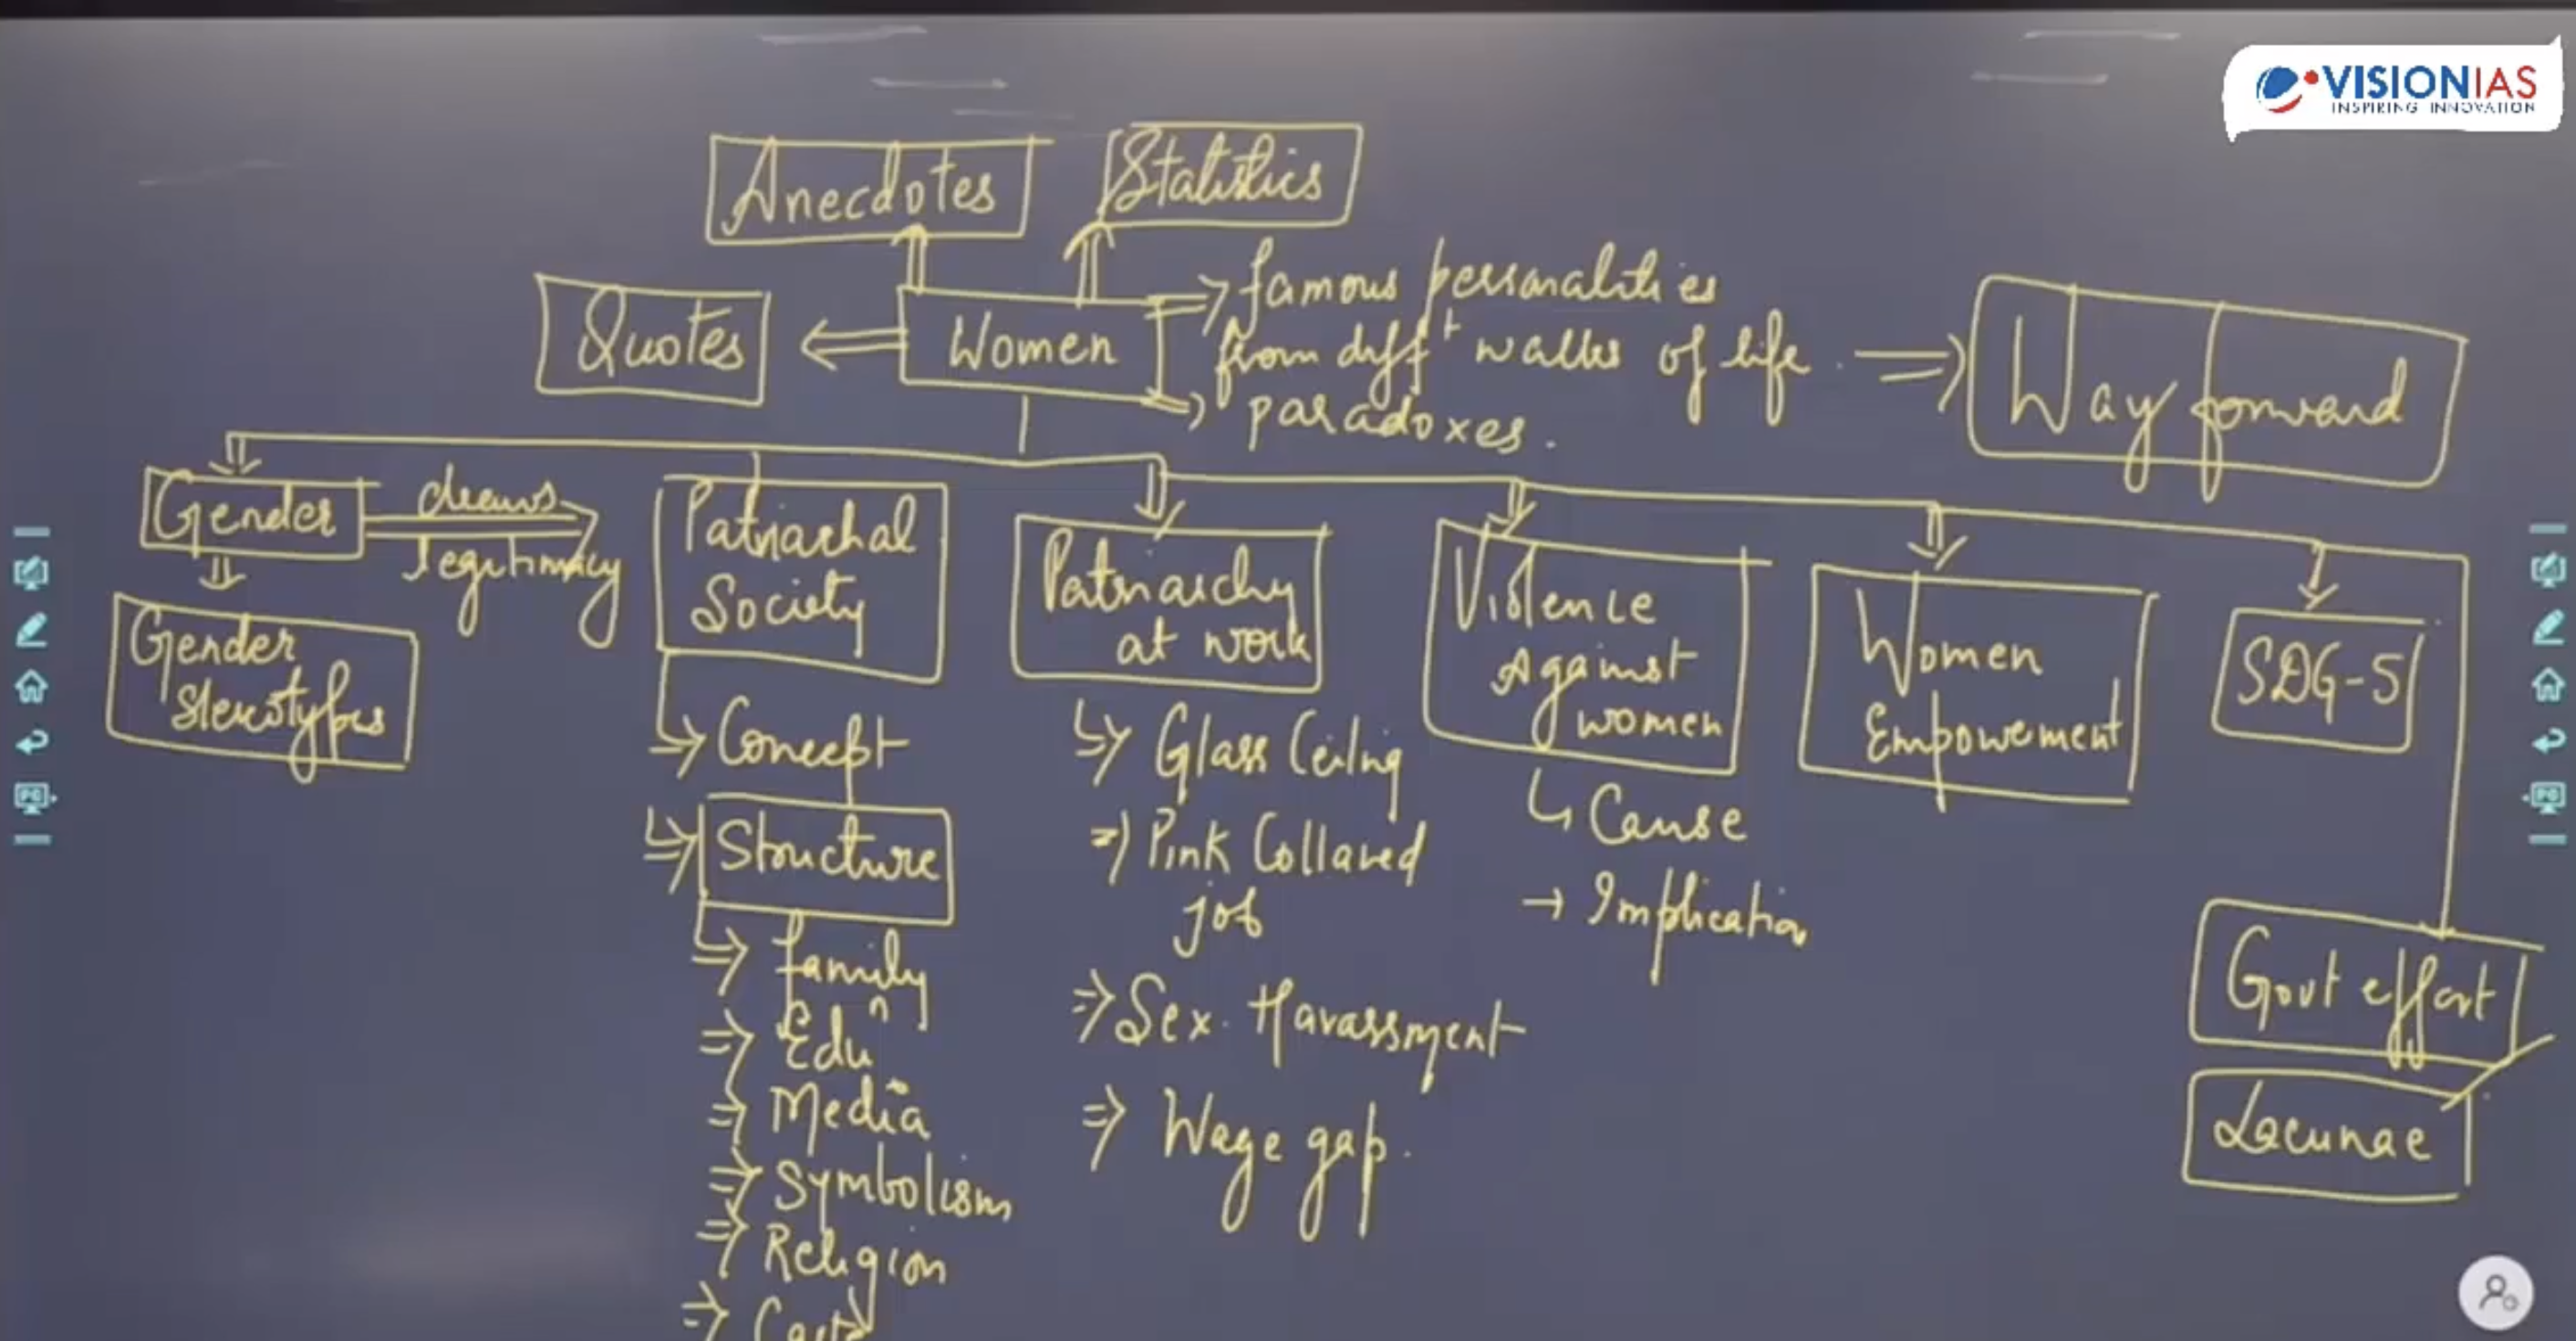 VISIONIAS
INSPIRING INNOVATION
Anecdotes
Statistics
Quotes
Women
famous personalities
from difft walks of life
paradoxes.
Way forward
Gender
draws
legitimacy
Gender
Stereotypes
Patriachal
Society
Concept
Structure
family
Edun
Media
Symbolism
Religion
Caste
Patriarchy
at work
Glass Ceiling
Pink Collared
job
Sex. Harassment
Wage gap.
Violence
Against
women
Cause
Implication
Women
Empowement
SDG-5
Govt effort
Lacunae